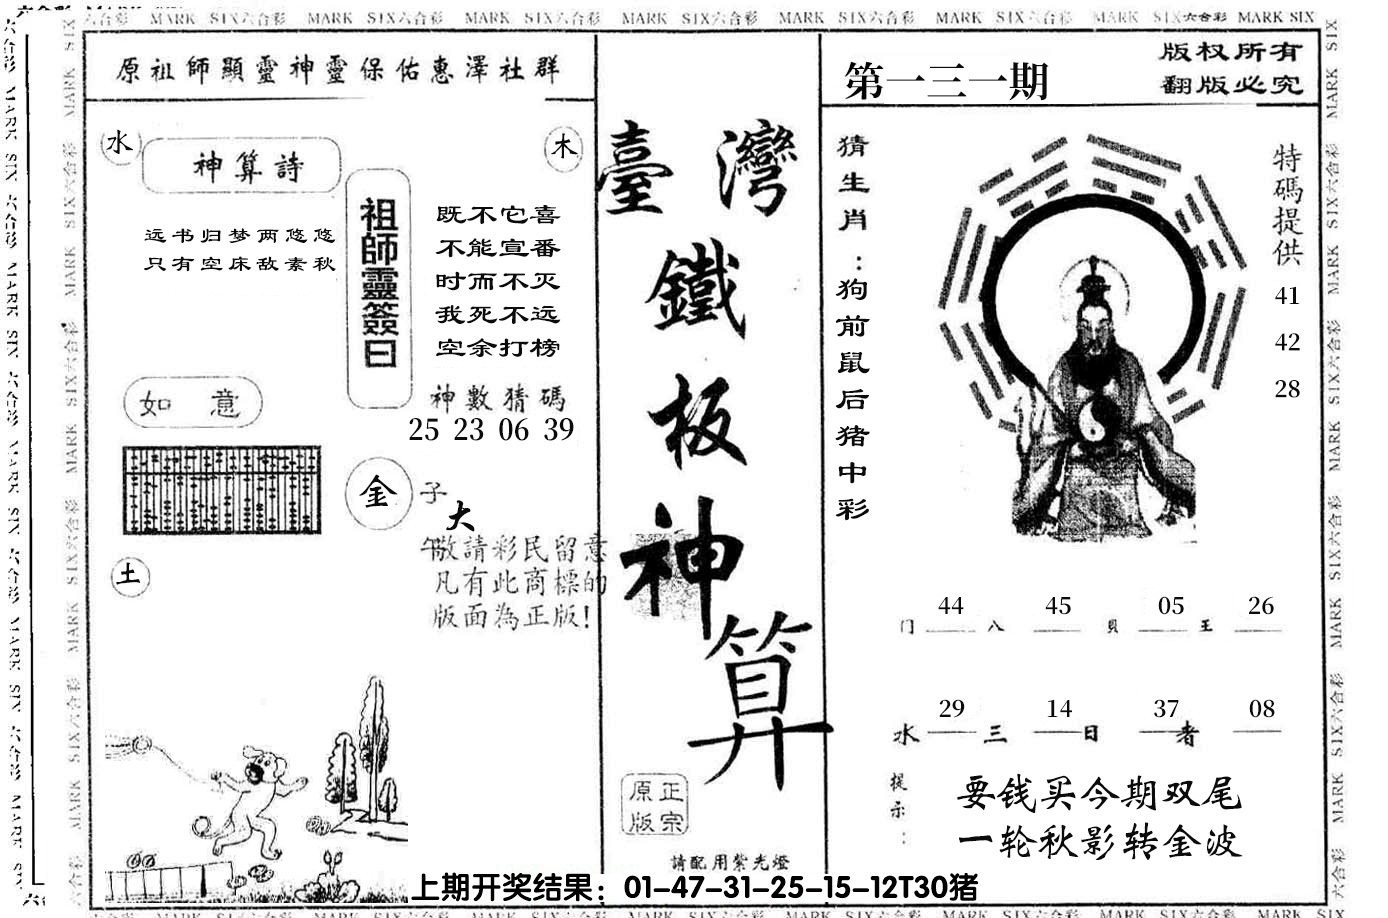 六合彩 MARK SIX六合彩 MARK SIX六合彩 MARK SIX六合彩 MARK SIX六合彩 MARK SIX六合彩 MARK SIX六合彩 MARK SIX六合彩 MARK SIX
原祖師顯靈神靈保佑惠澤社群
水
神算詩
木
远书归梦两悠悠
只有空床敌素秋
祖師靈簽曰
既不它喜
不能宣番
时而不灭
我死不远
空余打榜
神數猜碼
25 23 06 39
如 意
金
子
大
午
敬請彩民留意
凡有此商標的
版面為正版!
土
臺灣
鐵
板
神
算
原正
版宗
請配用紫光燈
第一三一期
版权所有
翻版必究
猜生肖:狗前鼠后猪中彩
特碼提供
41
42
28
44 45 05 26
门 八 貝 王
29 14 37 08
水 三 日 者
提示:
要钱买今期双尾
一轮秋影转金波
上期开奖结果：01-47-31-25-15-12T30猪